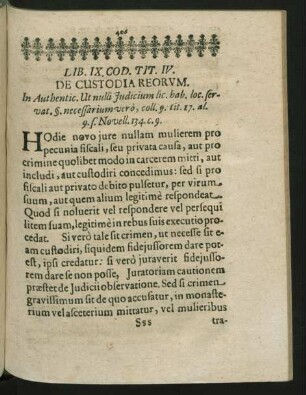 LIB. IX. COD. TIT. IV.
DE CUSTODIA REORVM.
In Authentic. Ut nulli Judicium lic. hab. loc. ser-
vat. §. necessarium verò, coll. 9. tit. 17. al.
9. s. Novell. 134. c. 9.
HOdie novo jure nullam mulierem pro
pecunia fiscali, seu privata causa, aut pro
crimine quolibet modo in carcerem mitti, aut
includi, aut custodiri concedimus: sed si pro
fiscali aut privato debito pulsetur, per virum
suum, aut quem alium legitimè respondeat.
Quod si noluerit vel respondere vel persequi
litem suam, legitimè in rebus suis executio pro-
cedat. Si verò tale sit crimen, ut necesse sit e-
am custodiri, siquidem fidejussorem dare pot-
est, ipsi credatur: si verò juraverit fidejusso-
rem dare se non posse, Juratoriam cautionem
præstet de Judicii observatione. Sed si crimen
gravissimum sit de quo accusatur, in monaste-
rium vel asceterium mittatur, vel mulieribus
Sss tra-